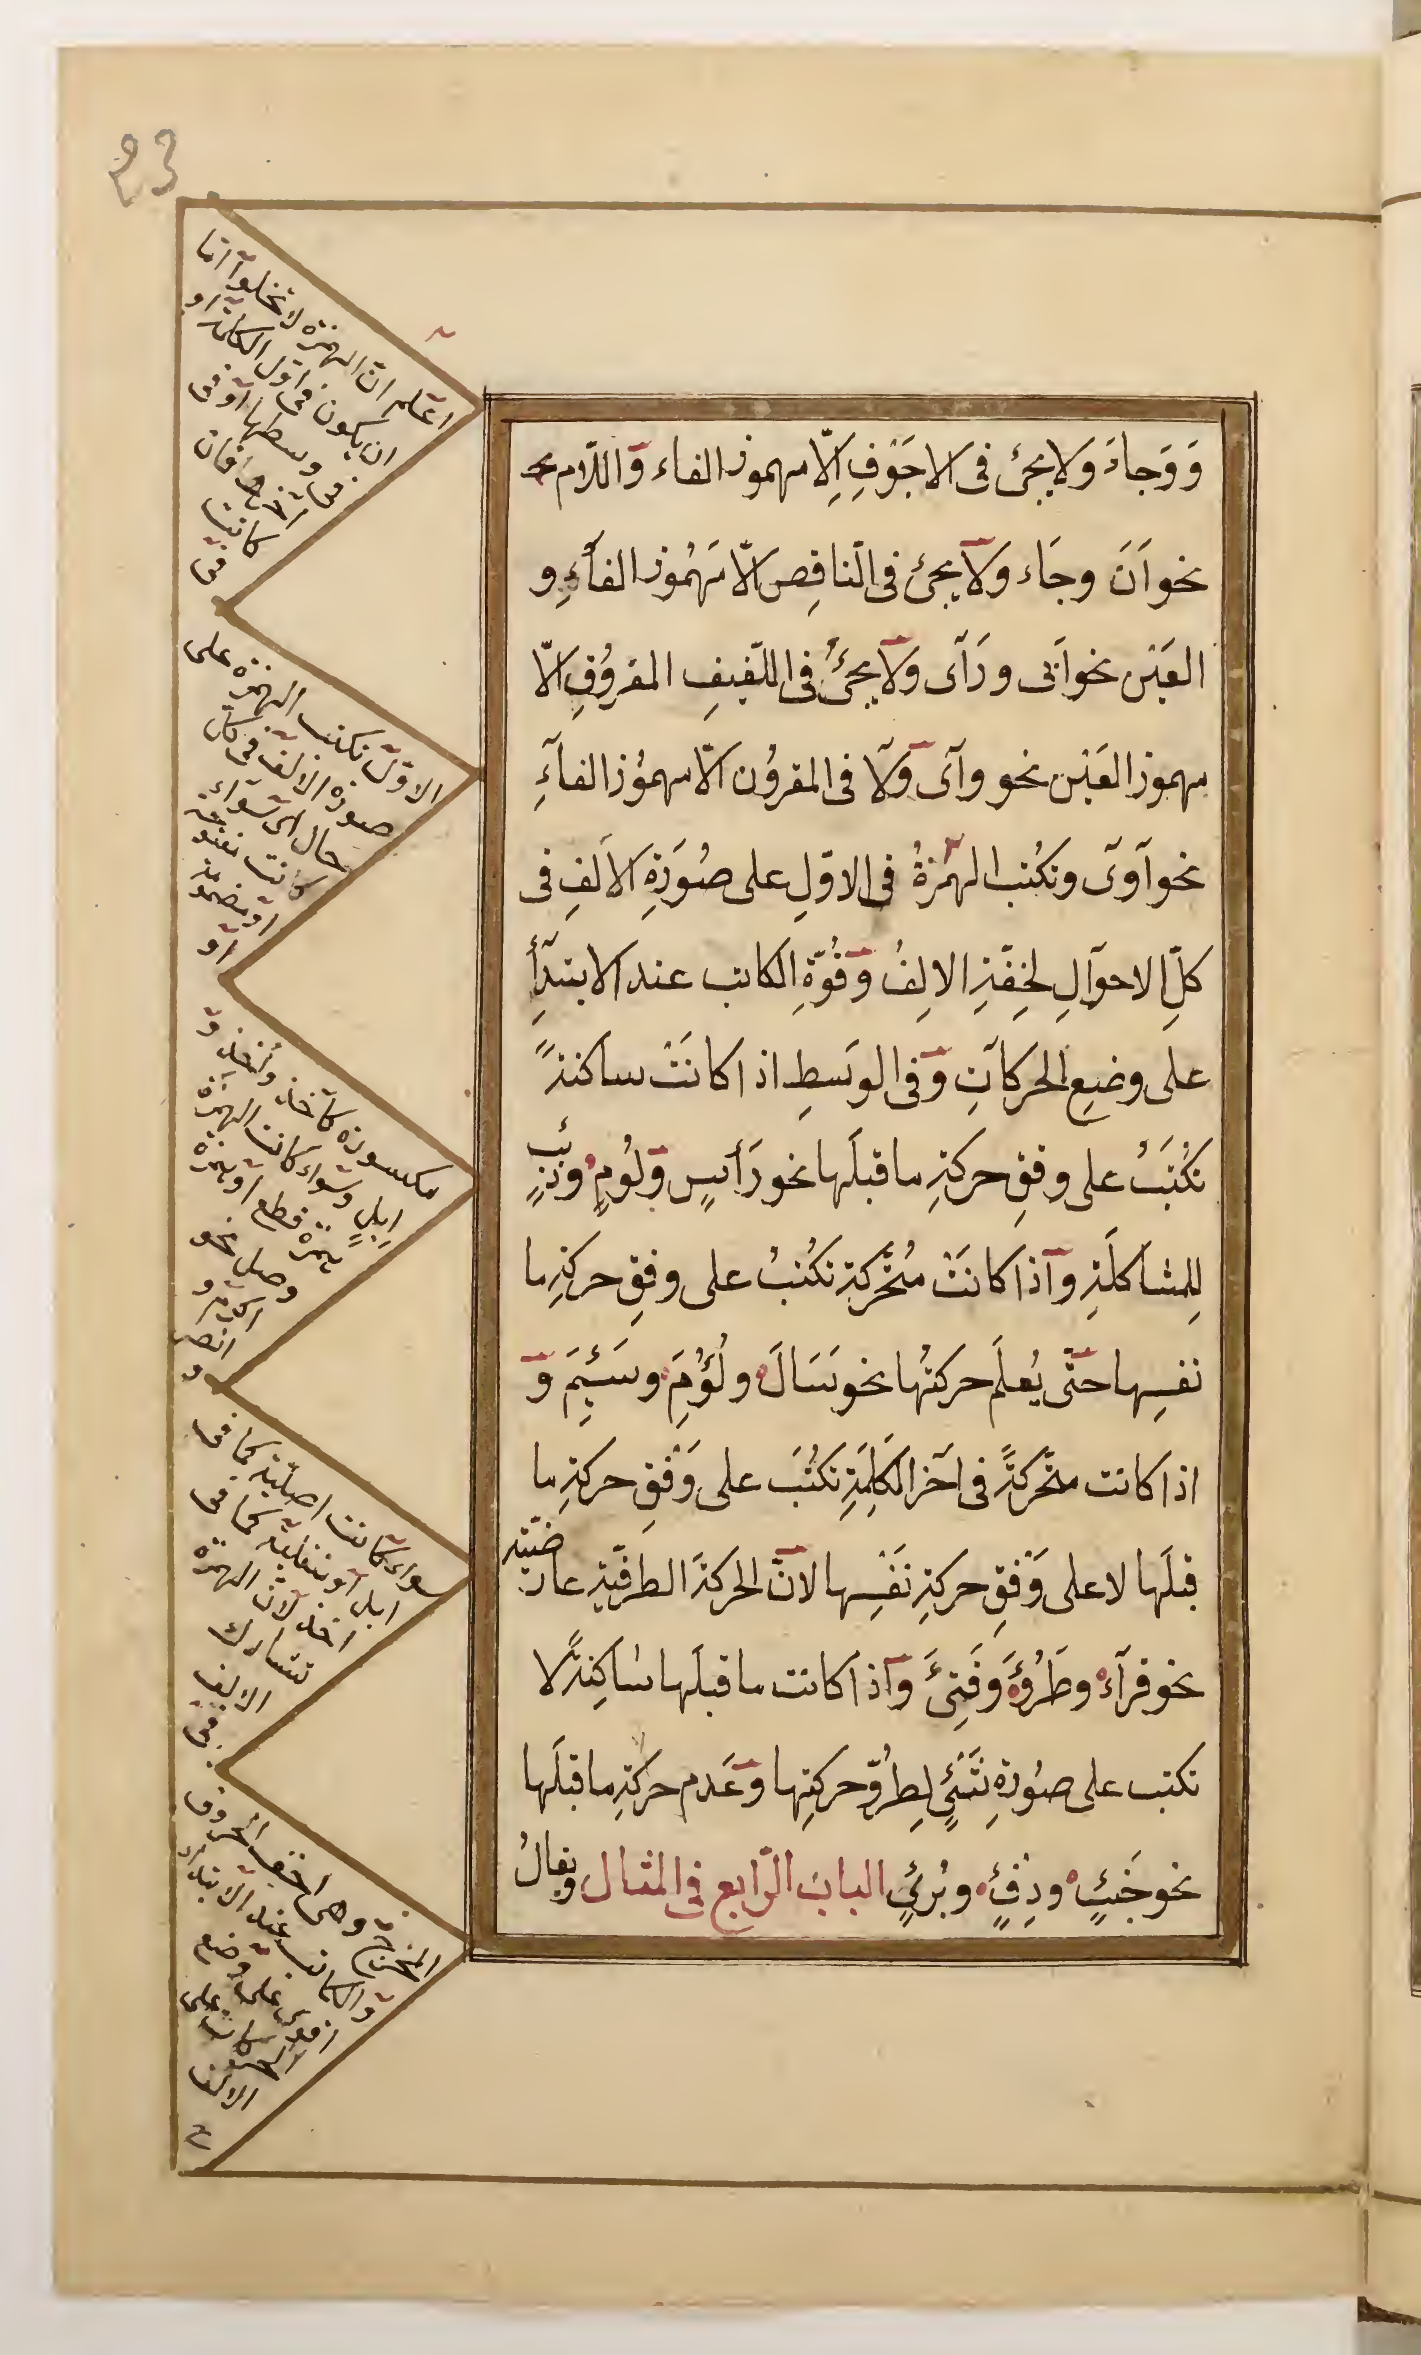 23
وَ وَجاءَ وَلا يجئ فى الاجوَفِ اِلّا مهموز الفاء وَاللّام
نحو اَنَ وجَاء وَلا يجئ فى النّاقِصِ الّا مَهْمُوز الفآءِ و
العَيْن نحو اَبى ورَآى ولا يجئُ فى اللّفيفِ المقروُفِ الّا
مهموز العَيْن نحو وآى وَلا فى المقرُون الّا مهموُز الفآءِ
نحو آوىَ وتكُتب الهَمْزةُ فى الاوّلِ على صُورَةِ الالفِ فى
كلِّ الاحوَالِ لخِفّةِ الالِفُ وَ قُوّةِ الكاتب عند الابتدآءِ
على وضعِ الحركاتِ وَفى الوسَطِ اذا كانَتْ ساكنةً
تكُتَبُ على وفقِ حركةِ ما قبلَها نحو رَأسٍ وَلُومٍ وذِئبٍ
لِلمشاكلَةِ وَاذا كانَتْ مُتحَّركة تكُتبُ على وفقِ حركةِ ما
نفسِها حتّى يُعلَم حركتُها نحو سَالَ ولُؤُمَ وسَئِمَ وَ
اذا كانت متحّركةً فى آخر الكَلِمَةِ تكتُبَ على وَفْقِ حركةِ ما
قبلَها لا على وَفْقِ حركةِ نفَسِها لانّ الحركةَ الطرفيّةِ عارضيّة
نحو قرآءَ وطَرُؤَ وَفَتِئَ وَاذا كانت ما قبلَها ساكِنةً لا
تكتب على صوُرةِ شَئْيٍ لِطِرُوِّ حركتِها وَعَدم حركةِ ما قبلَها
نحو خَبئٍ ودِفٍئ وبُرئٍ البابُ الرّابع فى المثال ويقالُ
اعلم انّ الهمزه لا تخلوا امّا
ان يكون فى اوّل الكلمة او
فى وسطها او فى
آخرها فان
كانت
فى
الاوّل تكتب الهمزة على
صورة الالف فى كلّ
حال اى سواء
كانت مفتوحة
او مضمومة
او
مكسورة كآخذ واُخِذ وَ
اِبلٍ وسواء كانت الهمزة
همزة قطع او همزة
وصل نحو
اكرم و
انصر
و
سواء كانت اصليّة كما فى
ابل او منقلبة كما فى
اخذ لانّ الهمزة
تشارك
الالف
فى
المخرج وهى اخفّ الحروف
والكاتب عند الابتداء
اقوى على وضع
الحركات على
الالف